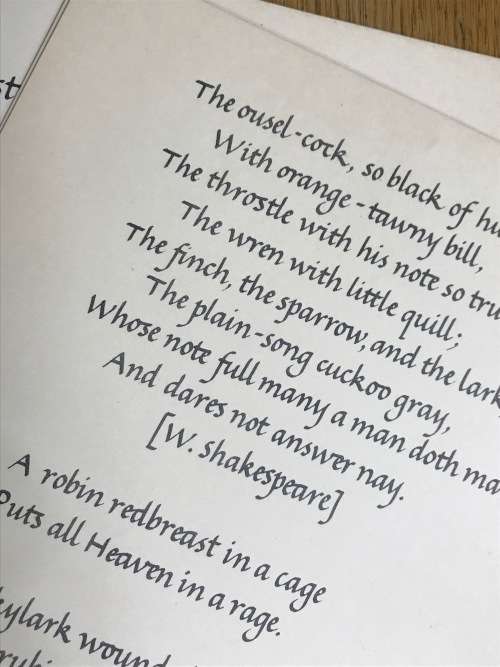 The ousel-cock, so black of
With orange-tawny bill,
The throstle with his note so
The wren with little quill;
The finch, the sparrow, and the lark
The plain-song cuckoo gray,
Whose note full many a man doth
And dares not answer nay.
[W. Shakespeare]
A robin redbreast in a cage
Puts all Heaven in a rage.